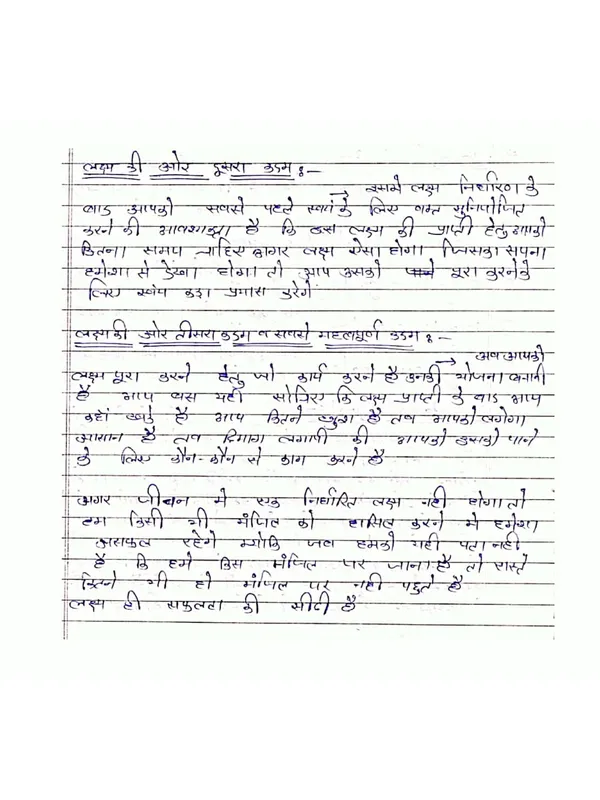 लक्ष्य की ओर दूसरा कदम :-
→ इसमे लक्ष्य निर्धारण के
बाद आपको सबसे पहले स्वयं के लिए वक्त सुनियोजित
करने की आवश्यकता है कि उस लक्ष्य की प्राप्ती हेतु आपको
कितना समय चाहिए अगर लक्ष्य ऐसा होगा जिसका सपना
हमेशा से देखा होगा तो आप उसको पूरा करनेके
लिए स्वंय कडा प्रयास करेगे
लक्ष्य की ओर तीसरा कदम व सबसे महत्वपूर्ण कदम :-
→ अब आपको
लक्ष्य पूरा करने हेतु जो कार्य करने है उनकी योजना बनानी
है आप बस यही सोचिए कि लक्ष्य प्राप्ती के बाद आप
कहाँ खडे है आप कितने खुश है तब आपको लगेगा
आसान है तब दिमाग लगायी की आपको उसको पाने
के लिए कौन-कौन से काम करने है
अगर जीवन मे एक निर्धारित लक्ष्य नही होगा तो
हम किसी भी मंजिल को हासिल करने मे हमेशा
असफल रहेगे क्योकि जब हमको यही पता नही
है कि हमे किस मंजिल पर जाना है तो रास्ते
कितने भी हो मंजिल पर नही पहुते है
लक्ष्य ही सफलता की सीढी है